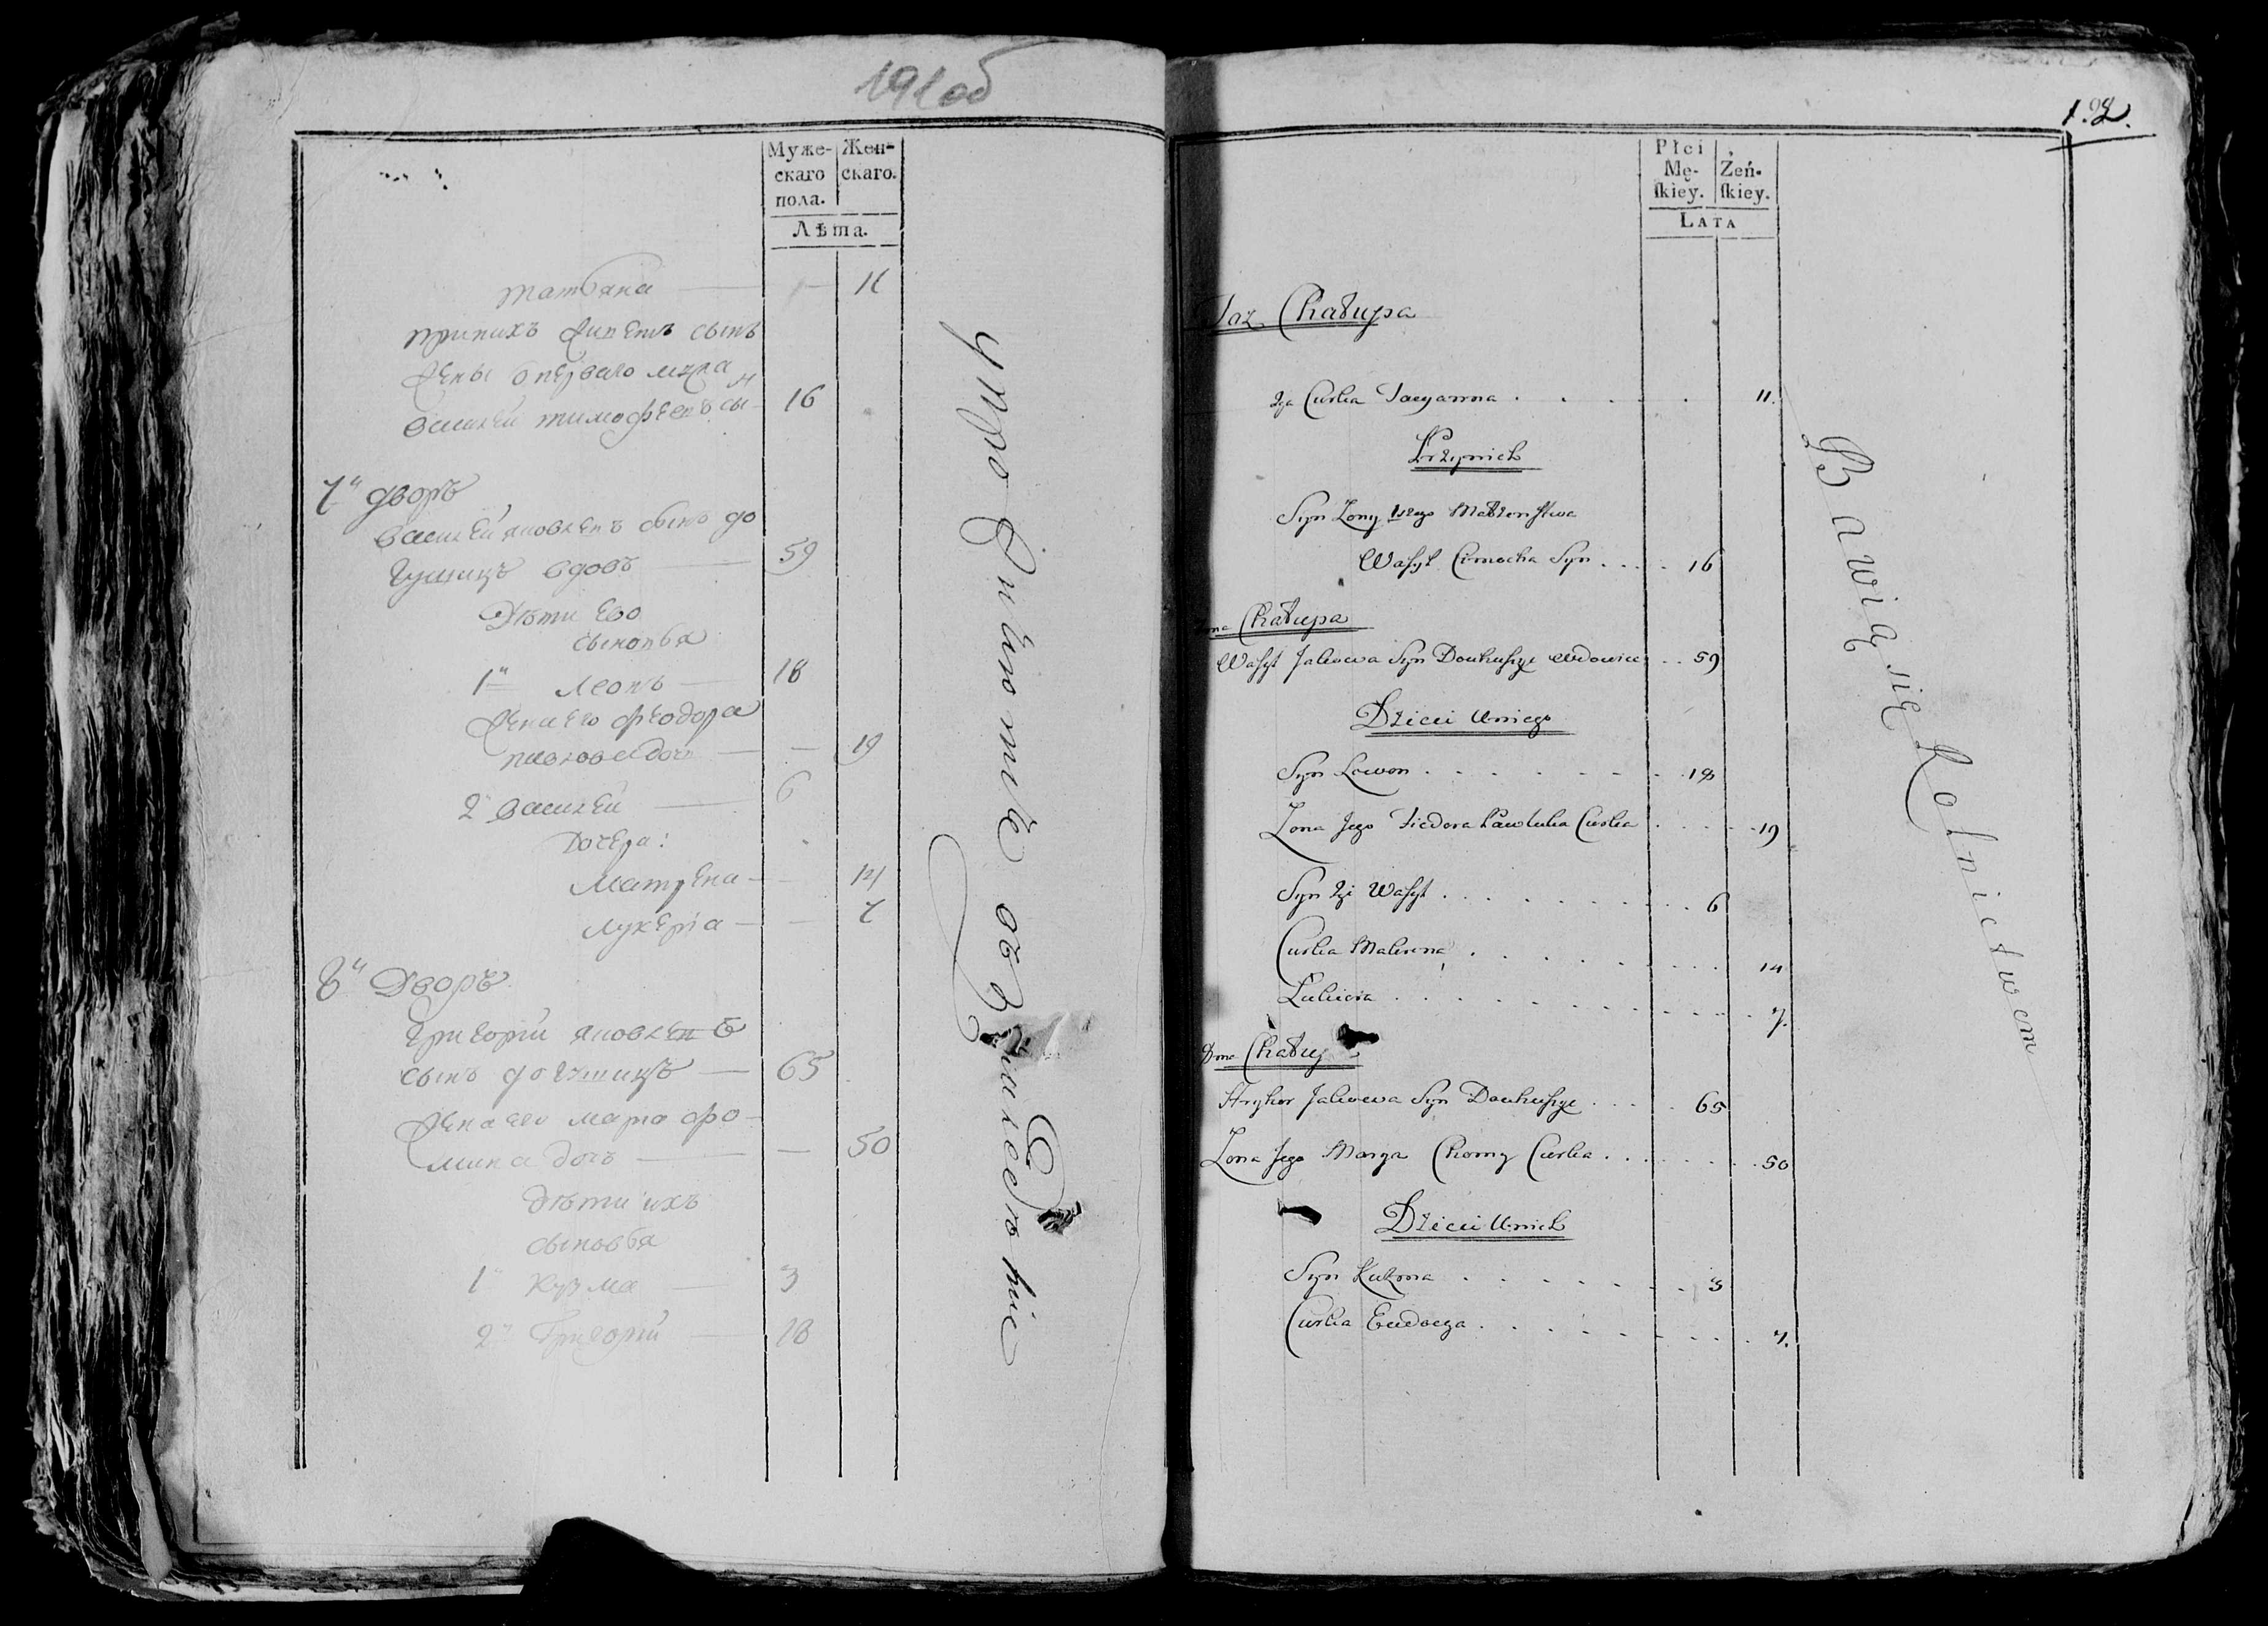 191 об
Муже-
скаго
пола.
Жен-
скаго.
Лѣта.
татьяна — — 11
при нихъ живетъ сынъ
жены отъ перваго мужа
василей тимофеевъ сынъ 16
7й дворъ
василей яковлевъ сынъ до
гушицъ вдовъ — 59
Дѣти ево
сыновья
1й леонъ — 18
жена его феодора
павлова дочь — — 19
2й василей — 6
Дочери:
Матрена — — 14
лукерiа — — 7
8й Дворъ
григорiй яковлевъ
сынъ догушицъ — 65
жена его марiа фо-
мина дочь — — 50
дѣти ихъ
сыновья
1й кузма — 3
2й Григорiй 18
12.
Płci
Mę-
ſkiey.
Żeń-
ſkiey.
LATA
Taż Chałupa
2ga Curka Tacyanna . . . . 11.
Przynich
Syn Żony 1szego Małżeństwa
Wasyl Cimocha Syn . . . . 16
7ma Chałupa
Wasyl Jakowa Syn Douhuszyc wdowiec . . 59
Dzieci Uniego
Syn Lewon . . . . . . . . 18
Żona Jego Fiedora Pawluka Curka . . . . . 19
Syn 2gi Wasyl . . . . . . . . . . 6
Curka Matrona . . . . . . . . . 14
Lukieria . . . . . . . . . . . 7.
8ma Chałup
Hryhor Jakowa Syn Douhuszyc . . . . 65
Żona Jego Marya Chomy Curka . . . . . . . 50
Dzieci Unich
Syn Kuźma . . . . . . . . . 3
Curka Eudocya . . . . . . . . . . 7.
Bawią się Rolnictwem